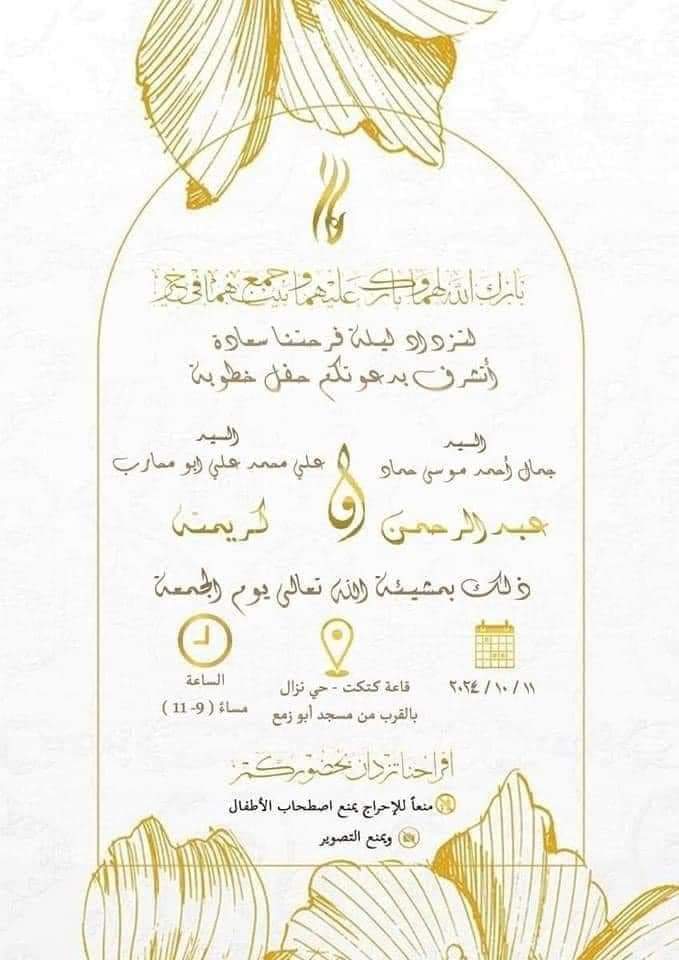 بارك الله لهما وبارك عليهما وجمع بينهما في خير
لتزداد ليلة فرحتنا سعادة
أتشرف بدعوتكم حفل خطوبة
السيد
جمال أحمد موسى حماد
السيد
علي محمد علي ابو محارب
عبدالرحمن
و
كريمته
ذلك بمشيئة الله تعالى يوم الجمعة
٢٠٢٤ / ١٠ / ١١
قاعة كتكت - حي نزال
بالقرب من مسجد أبو زمع
الساعة
مساءً ( 9- 11 )
افراحنا تزدان بحضوركم
منعاً للإحراج يمنع اصطحاب الأطفال
ويمنع التصوير